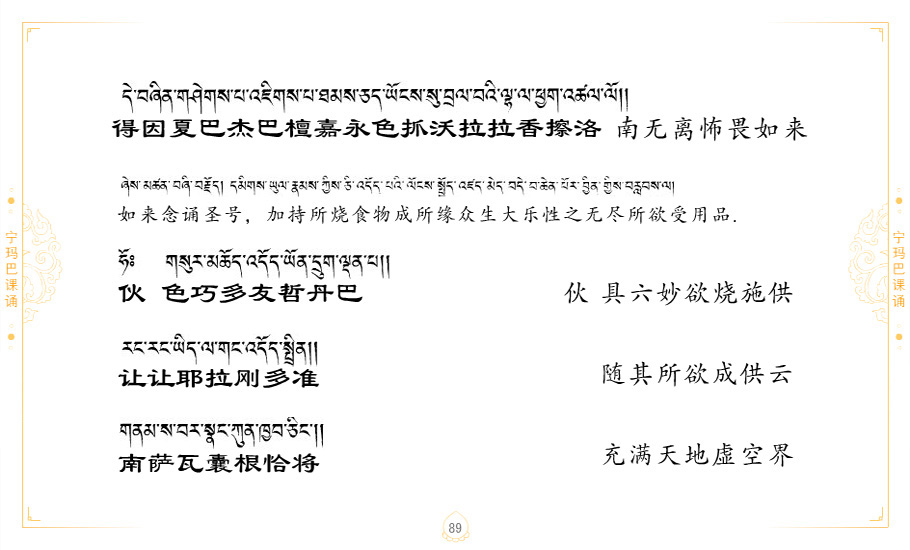 དེ་བཞིན་གཤེགས་པ་འཇིགས་པ་ཐམས་ཅད་ཡོངས་སུ་བྲལ་བའི་ལྷ་ལ་ཕྱག་འཚལ་ལོ།།
得因夏巴杰巴檀嘉永色抓沃拉拉香擦洛 南无离怖畏如来
ཞེས་མཚན་བཞི་བརྗོད། དམིགས་ཡུལ་རྣམས་ཀྱིས་ཅི་འདོད་པའི་ལོངས་སྤྱོད་འཛད་མེད་བདེ་བ་ཆེན་པོར་བྱིན་གྱིས་བརླབས་ལ།
如来念诵圣号，加持所烧食物成所缘众生大乐性之无尽所欲受用品.
ཧོཿ གསུར་མཆོད་འདོད་ཡོན་དྲུག་ལྡན་པ།།
伙 色巧多友哲丹巴 伙 具六妙欲烧施供
རང་རང་ཡིད་ལ་གང་འདོད་སྤྲིན།།
让让耶拉刚多准 随其所欲成供云
གནམ་ས་བར་སྣང་ཀུན་ཁྱབ་ཅིང་།།
南萨瓦囊根恰将 充满天地虚空界
宁玛巴课诵
宁玛巴课诵
89